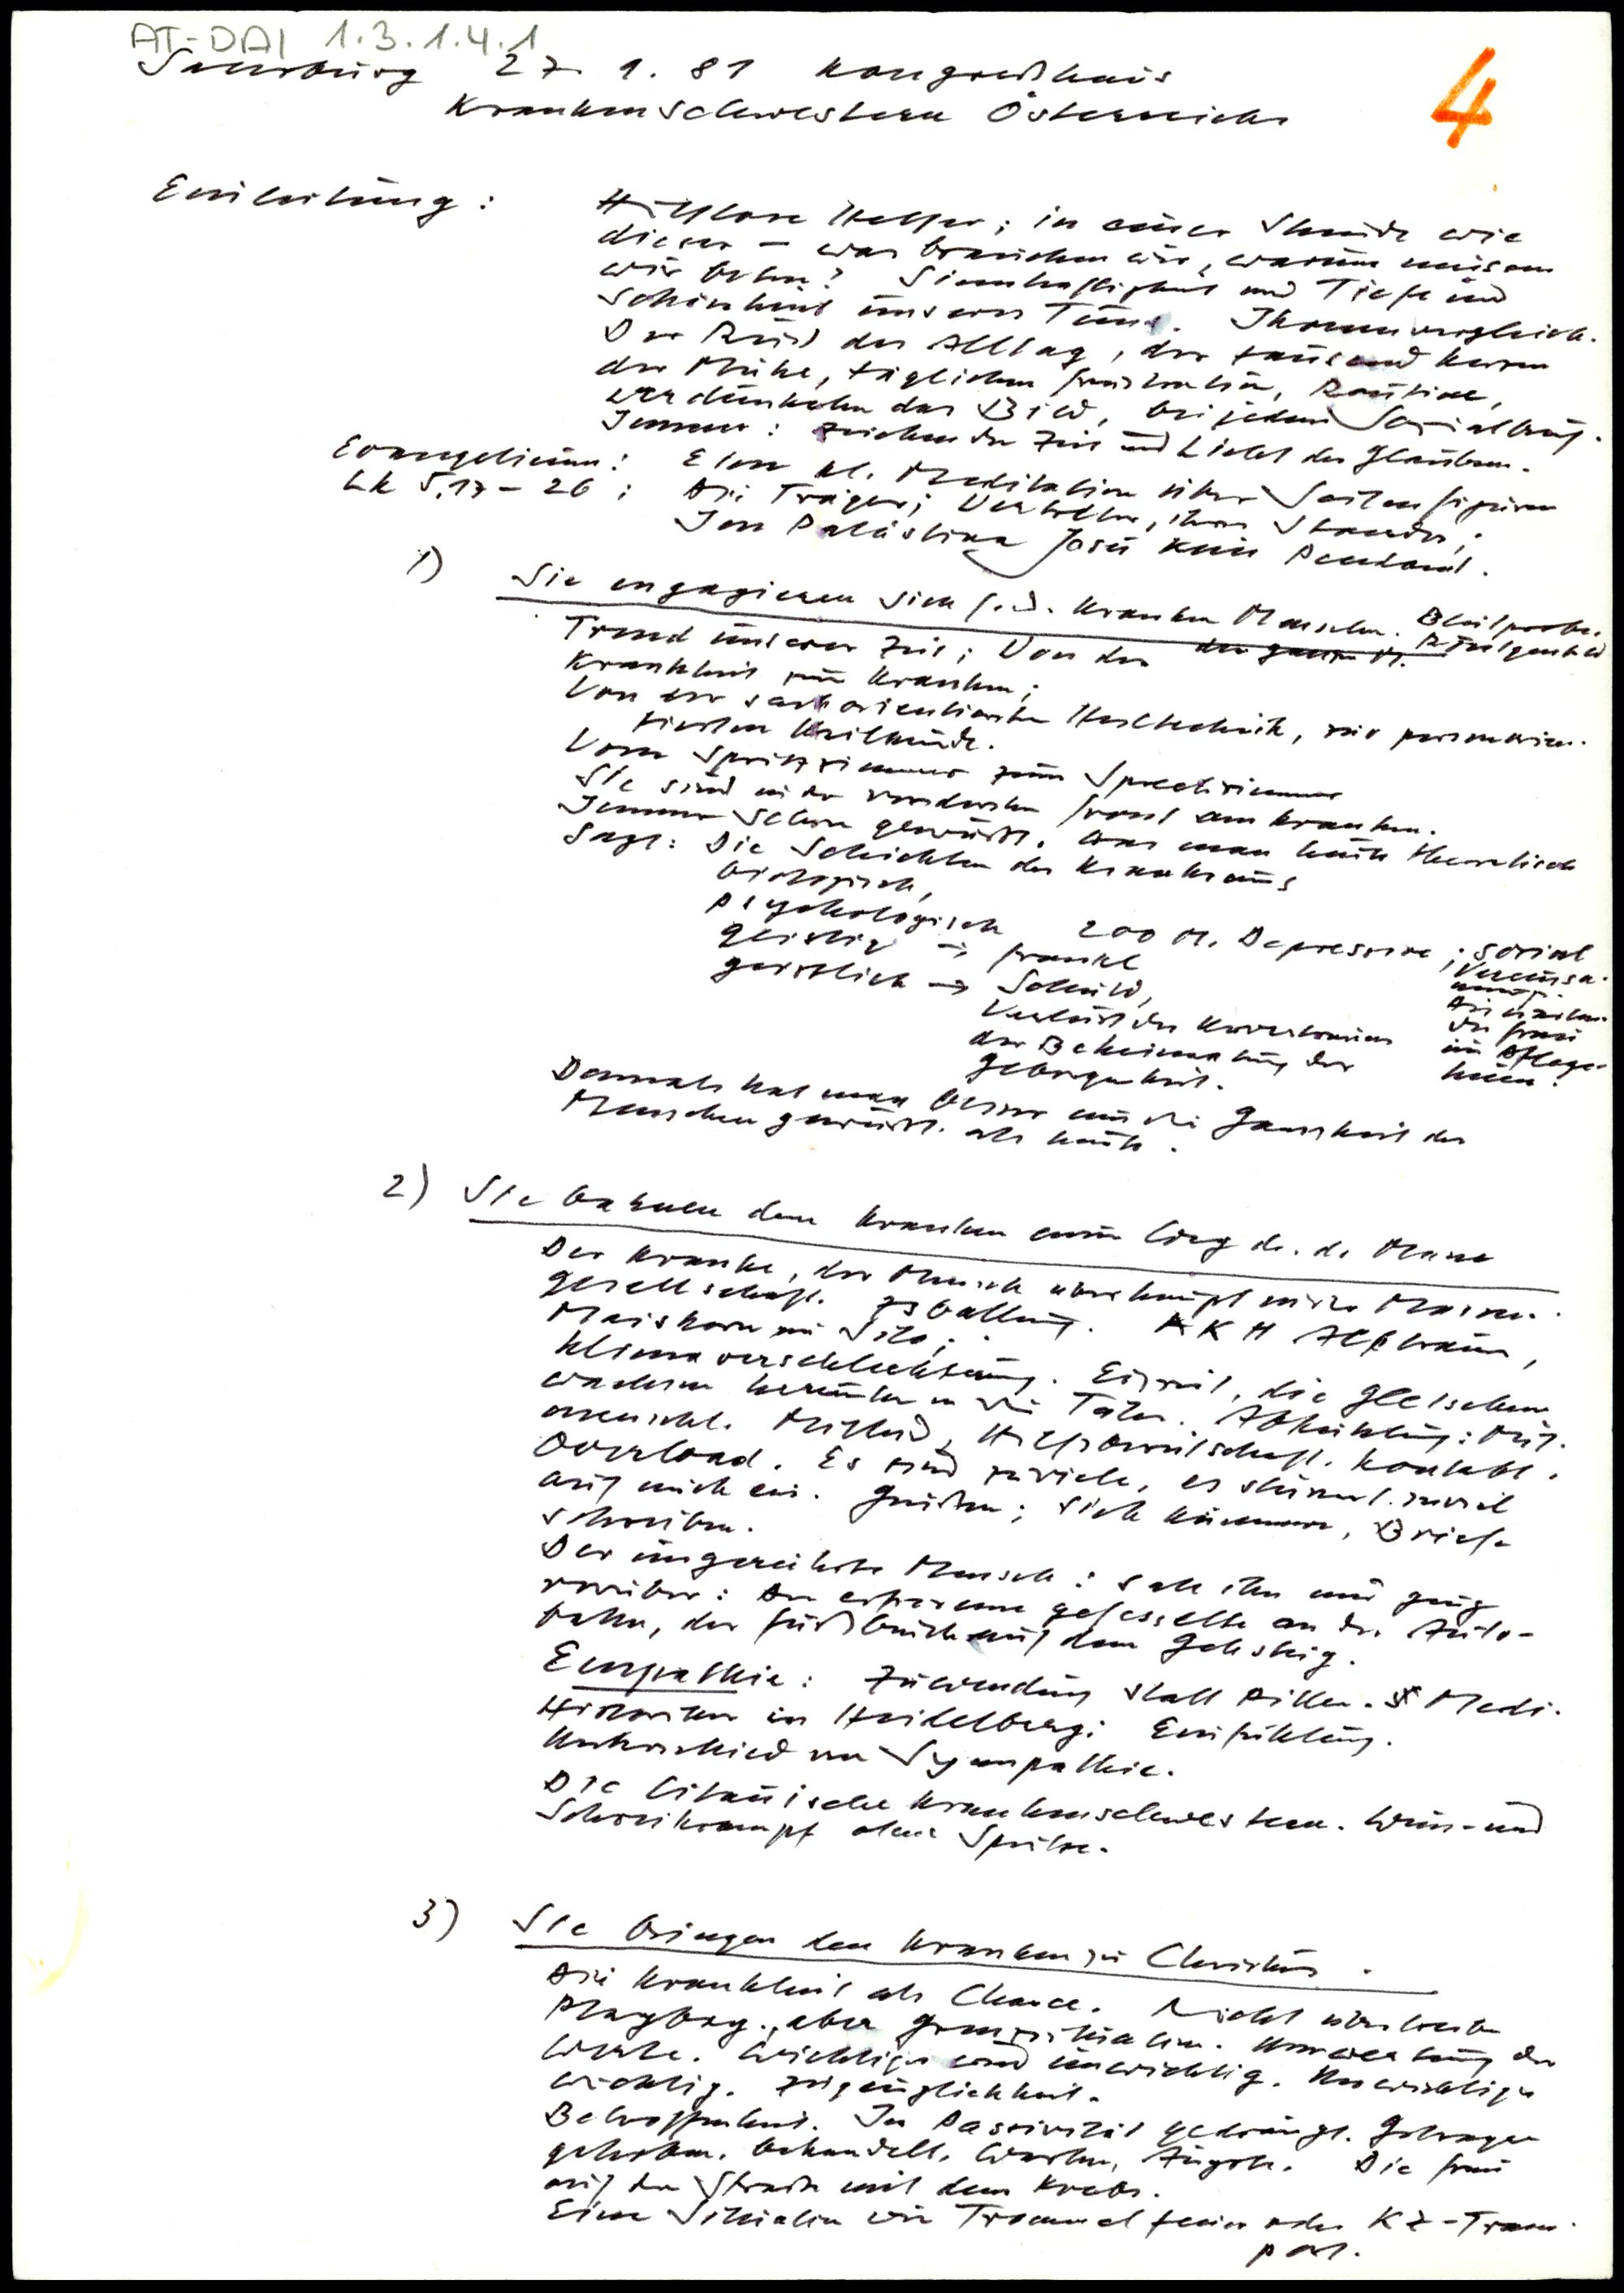 AT-DAI 1.3.1.4.1
Salzburg 27. 9. 81 Kongreßhaus
Krankenschwestern Österreichs
4
Einleitung: Hilflose Helfer; in einer Stunde wie
dieser – was brauchen wir, warum müssen
wir beten? Sinnhaftigkeit und Tiefe und
Schönheit unseres Tuns. Ikonenvergleich.
Der Ruß des Alltag, der tausend Kerzen
der Mühe, täglichen Frustration, Routine,
verdunkeln das Bild, bei jedem Sozialberuf.
Immer: zeichen der Zeit und Licht des Glaubens.
Evangelium: Eine kl. Meditation über Seitenfiguren
Lk 5,17–26: Die Träger; Vertreter, ihres Standes;
Im Palästina Jesu kein Pendant.
1) Sie engagieren sich f. d. kranken Menschen. Blutprobe.
Röntgenbild
Trend unserer Zeit; Von der den ganzen M.
Krankheit zum Kranken;
Von der sachorientierten Heiltechnik, zur personorien-
tierten Heilkunde.
Vom Spritzzimmer zum Sprechzimmer
Sie sind in der vordersten Front am Kranken.
Immer schon gewußt. Was man heute theoretisch
sagt: Die Schichten des Krankseins
biologisch,
psychologisch 200 M. Depressive; sozial
geistig → Frankl Vereinsa-
geistlich → Schuld, mung.
Verlust des Die
der Beheimatung der der Frau
Geborgenheit. im Pflege-
heim.
Damals hat man besser um die Ganzheit des
Menschen gewußt als heute.
2) Sie bahnen dem Kranken einen Weg d. d. Masse
Der Kranke, der Mensch überhaupt in der Massen-
gesellschaft. zs ballung. AKH Alptraum,
Maiskorn im Silo;
Klimaverschlechterung. Eiszeit, die Gletscher
wachsen herunter in die Täler. Abkühlung: Mit-
menschl. Mitleid, Hilfsbereitschaft. Kontakt.
Overload. Es sind zuviele, es stürmt zuviel
auf mich ein. Grüßen; sich kümmern, Briefe
schreiben.
Der ungereihte Mensch: sah ihn und ging
vorüber: Der erfrorene gefesselte an der Auto-
bahn, der Fußbruch auf dem Gehsteig.
Empathie: Zuwendung statt Pillen. Medi.
Historiker in Heidelberg: Einfühlung.
Unterschied von Sympathie.
Die litauische Krankenschwester. Wein- und
Schreikrampf ohne Spritze.
3) Sie bringen den Kranken zu Christus.
Die Krankheit als Chance. Nicht
Playboy, aber Grenzsituation. Umwertung der
Werte. Wichtiges wird unwichtig. Unwichtiges
wichtig. Zugänglichkeit.
Betroffenheit. In Passivität gedrängt. Getragen
gehoben. behandelt. Warten, Ängste. Die Frau
auf der Straße mit dem Krebs.
Eine Situation wie Trommelfeuer oder KZ-Trans-
port.